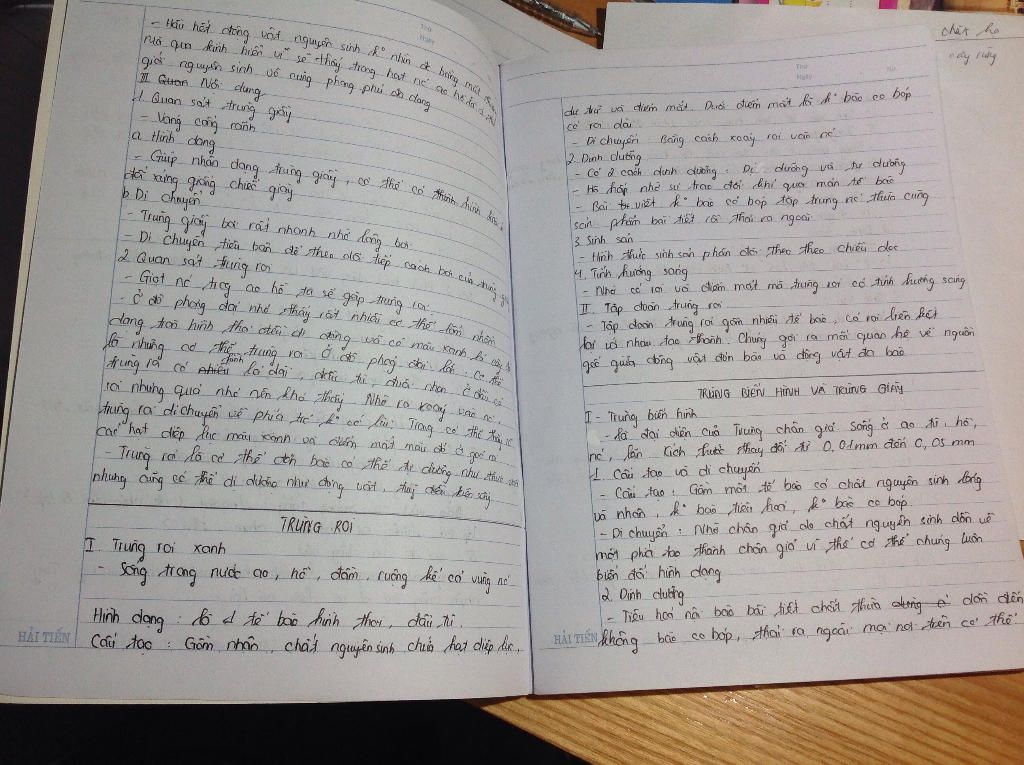 - Hầu hết động vật nguyên sinh k° nhìn đc bằng mắt thường
giới nguyên sinh vô cùng phong phú đa dạng
III Quan Nội dung
1. Quan sát trùng giày
- Váng cống rãnh
a. Hình dạng
- Giúp nhận dạng trùng giày, cơ thể có hình
đối xứng giống chiếc giày
b. Di chuyển
- Trùng giày bơi rất nhanh nhờ lông bơi
- Di chuyển tiêu bản để theo dõi tiếp cách bơi của trùng giày
2. Quan sát trùng roi
- Giọt nc trog ao hồ ta sẽ gặp trùng roi
- Ở độ phóng đại nhỏ thấy rất nhiều cơ thể
dạng tròn hình thoi đang di động và có màu xanh lá cây
là những cơ thể trùng roi. Ở độ phóng đại lớn: Cơ thể
trùng roi có nhiều hình lá dài, đầu tù, đuôi nhọn, ở đầu có
roi nhưng quá nhỏ nên khó thấy. Nhờ roi xoáy vào nc,
trùng roi di chuyển về phía trc k° có lùi. Trong cơ thể thấy rõ
các hạt diệp lục màu xanh và điểm mắt màu đỏ ở gốc roi
- Trùng roi là cơ thể đơn bào có thể tự dưỡng như thực vật
nhưng cũng có thể dị dưỡng như động vật, tùy điều kiện
TRÙNG ROI
I. Trùng roi xanh
- Sống trong nước ao, hồ, đầm, ruộng kể cả vũng nc
Hình dạng: là 1 tế bào hình thoi, đầu tù.
Cấu tạo: Gồm nhân, chất nguyên sinh chứa hạt diệp lục,
HẢI TIẾN
dự trữ và điểm mắt. Dưới điểm mắt là k° bào co bóp
có roi dài
- Di chuyển: Bằng cách xoáy roi vào nc
2. Dinh dưỡng
- Có 2 cách dinh dưỡng: Dị dưỡng và tự dưỡng
- Hô hấp nhờ sự trao đổi khí qua màn tế bào
- Bài tiết k° bào co bóp tập trung nc thừa cùng
sản phẩm bài tiết rồi thải ra ngoài
3. Sinh sản
- Hình thức sinh sản phân đôi theo theo chiều dọc
4. Tính hướng sáng
- Nhờ có roi và điểm mắt mà trùng roi có tính hướng sáng
II. Tập đoàn trùng roi
- Tập đoàn trùng roi gồm nhiều tế bào, có roi liên kết
lại vs nhau tạo thành. Chúng gợi ra mối quan hệ về nguồn
gốc giữa động vật đơn bào và động vật đa bào
TRÙNG BIẾN HÌNH VÀ TRÙNG GIÀY
I - Trùng biến hình
- Là đại diện của Trùng chân giả. Sống ở ao tù, hồ,
nc, lặn. Kích thước thay đổi từ 0,01mm đến 0,05 mm
1. Cấu tạo và di chuyển
- Cấu tạo: Gồm một tế bào có chất nguyên sinh lỏng
và nhân, k° bào tiêu hoá, k° bào co bóp.
- Di chuyển: Nhờ chân giả do chất nguyên sinh dồn về
một phía tạo thành chân giả vì thế cơ thể chúng luôn
biến đổi hình dạng
2. Dinh dưỡng
- Tiêu hoá nội bào bài tiết chất thừa dồn đến
không bào co bóp, thải ra ngoài mọi nơi trên cơ thể
HẢI TIẾN